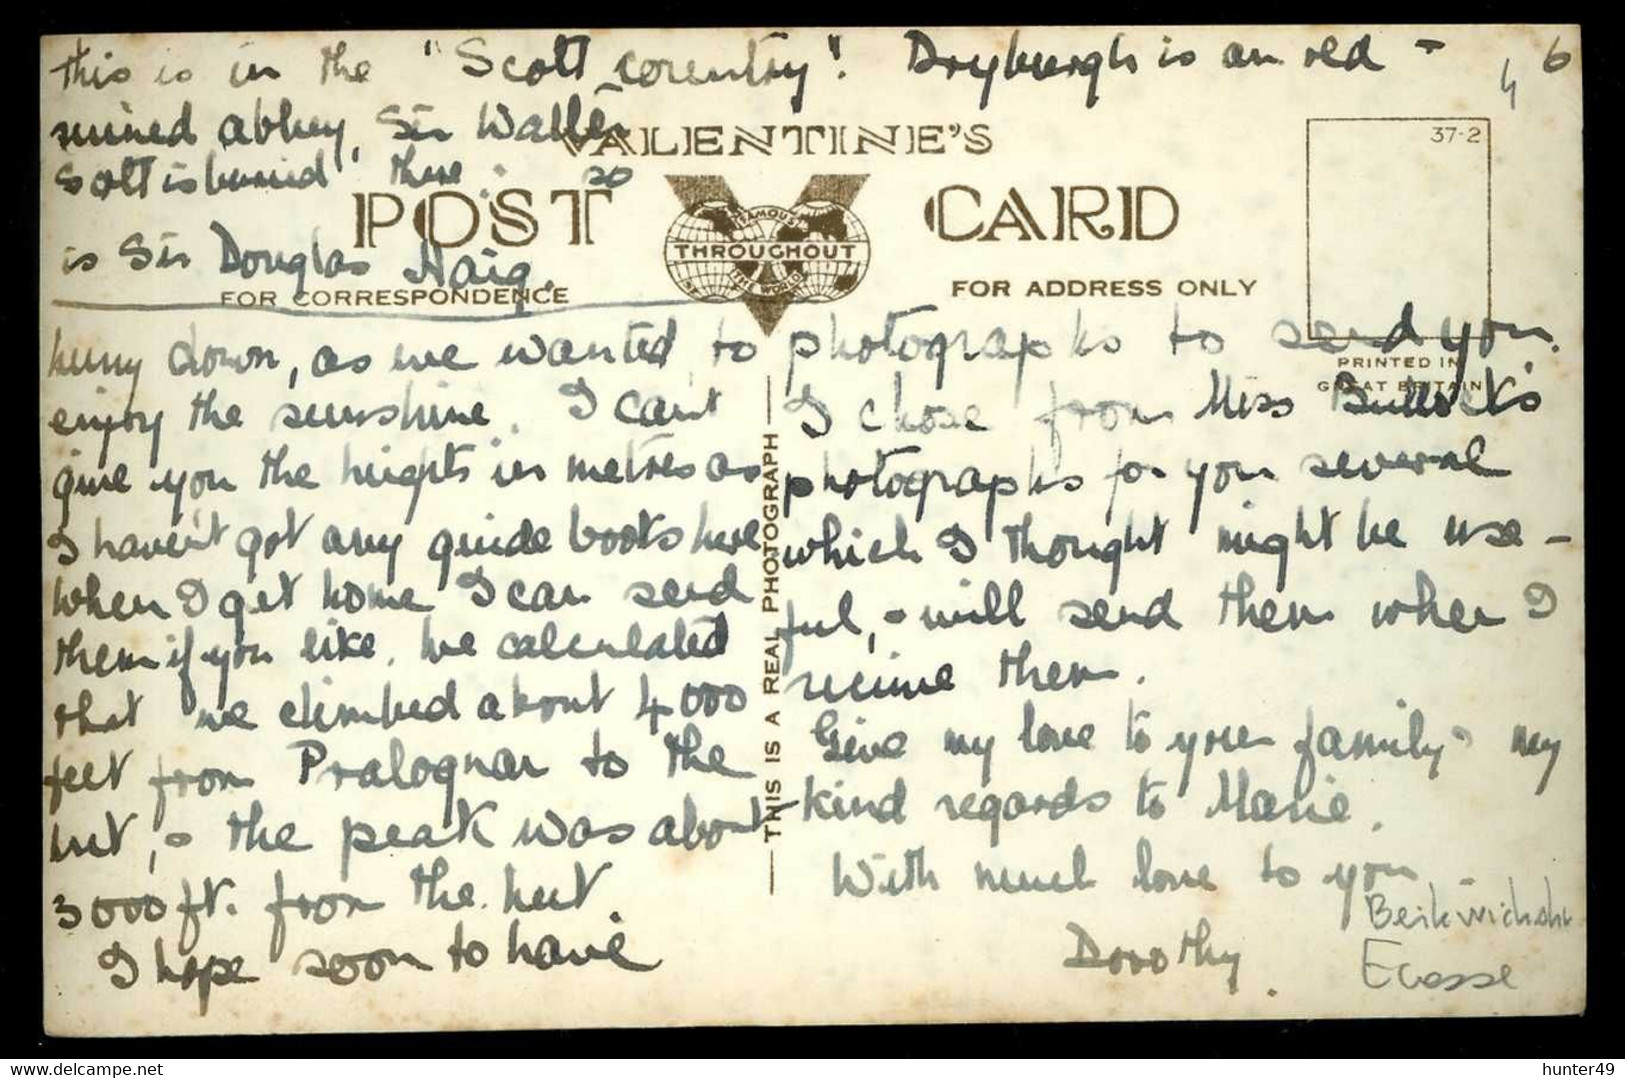 This is in the "Scott country". Dryburgh is an old -
ruined abbey, Sir Walter
Scott is buried there. so
is Sir Douglas Haig.
4 6
VALENTINE'S
POST CARD
FAMOUS
THROUGHOUT
THE WORLD
FOR CORRESPONDENCE
FOR ADDRESS ONLY
37-2
PRINTED IN
GREAT BRITAIN
THIS IS A REAL PHOTOGRAPH
hurry down, as we wanted to
enjoy the sunshine. I can't
give you the heights in metres as
I haven't got any guide books here
when I get home I can send
them if you like. We calculated
that we climbed about 4000
feet from Pralognan to the
hut, - the peak was about
3000 ft. from the hut.
I hope soon to have
photographs to send you.
I chose from Miss Bullock's
photographs for you several
which I thought might be use-
ful, - will send them when I
receive them.
Give my love to your family - my
kind regards to Marie.
With much love to you
Dorothy.
Ecosse
hunter49